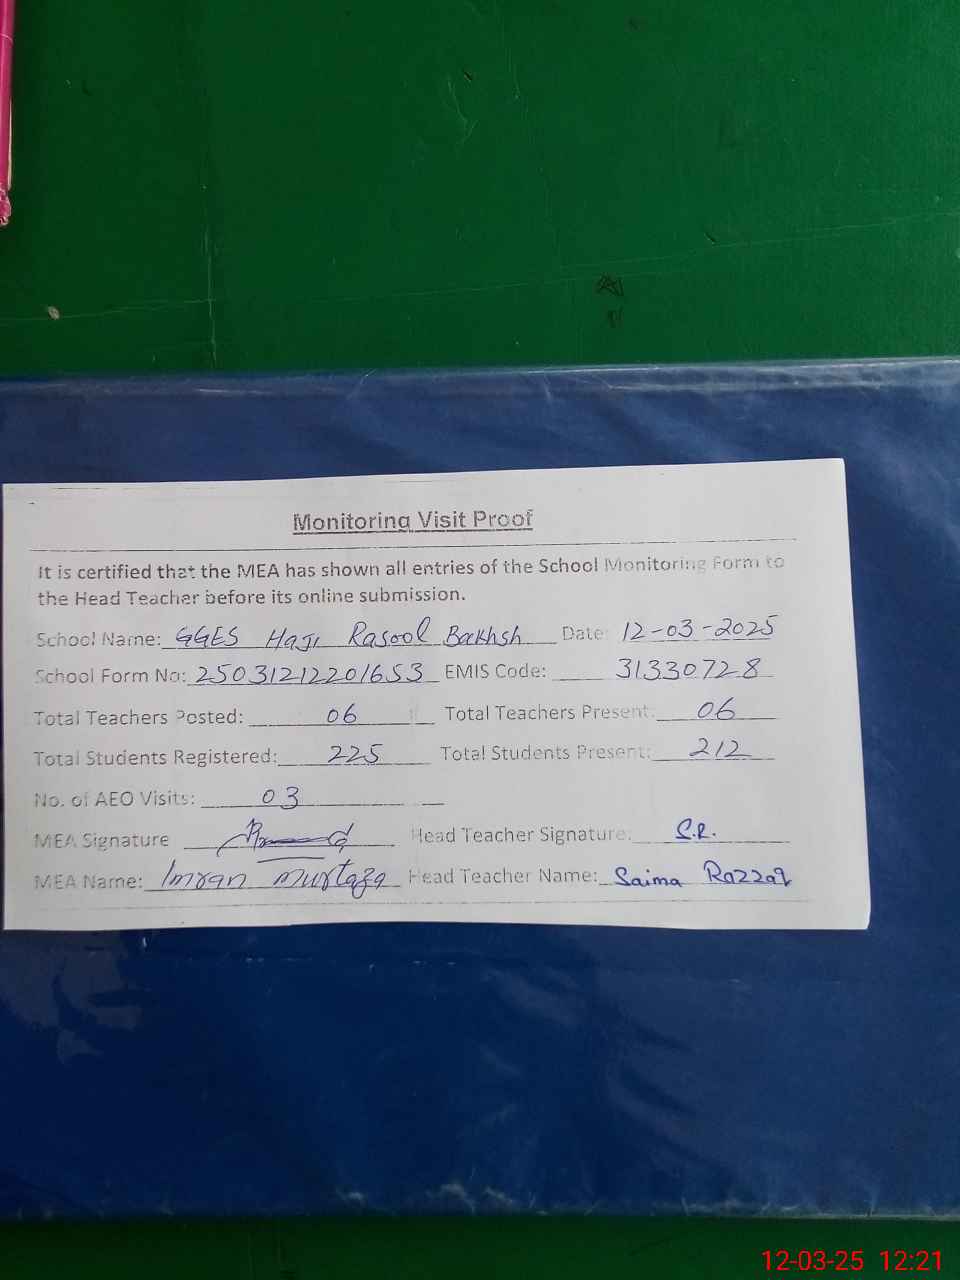 Monitoring Visit Proof
It is certified that the MEA has shown all entries of the School Monitoring Form to
the Head Teacher before its online submission.
School Name: GGES Haji Rasool Bakhsh Date: 12-03-2025
School Form No: 25031212201653 EMIS Code: 31330728
Total Teachers Posted: 06 Total Teachers Present: 06
Total Students Registered: 225 Total Students Present: 212
No. of AEO Visits: 03
MEA Signature Head Teacher Signature: S.R.
MEA Name: Imran Murtaza Head Teacher Name: Saima Razzaq
12-03-25 12:21